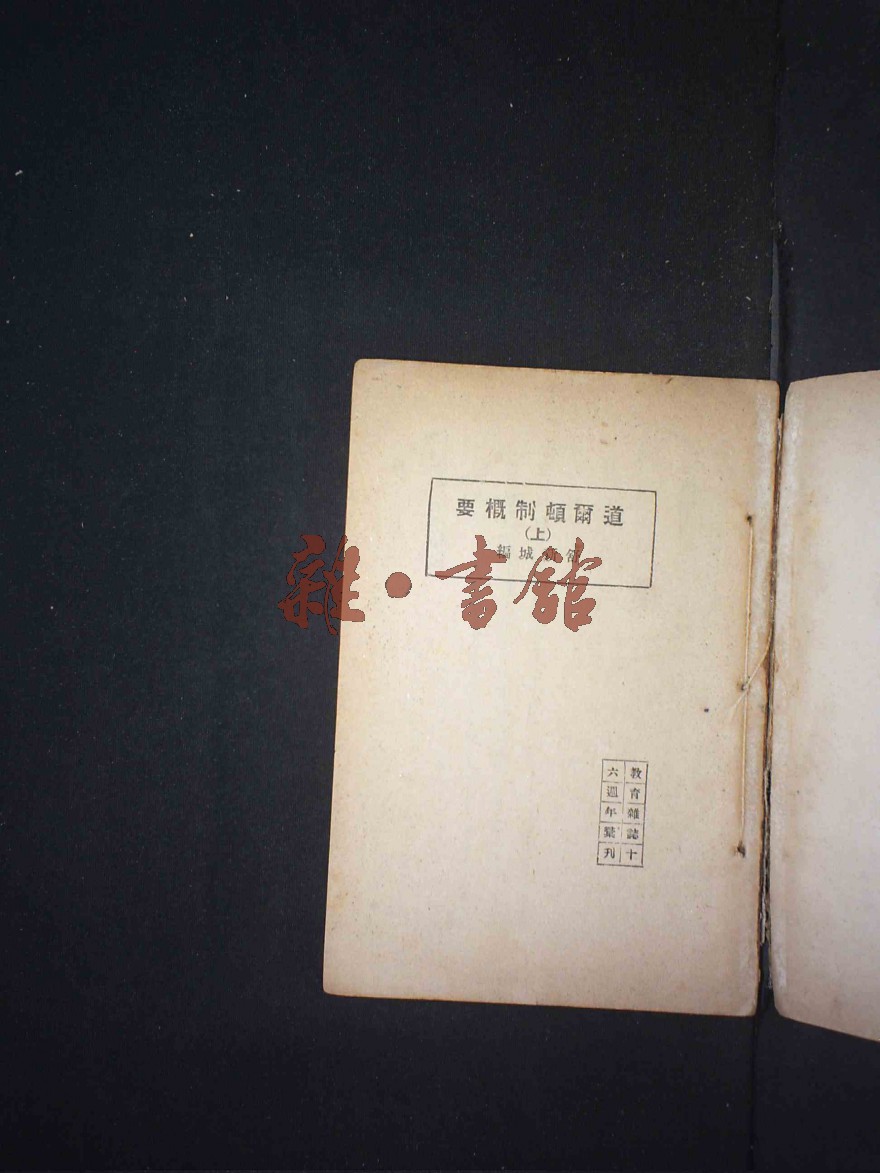 道爾頓制概要
(上)
城編
雜·書館
教育雜誌十
六週年彙刊